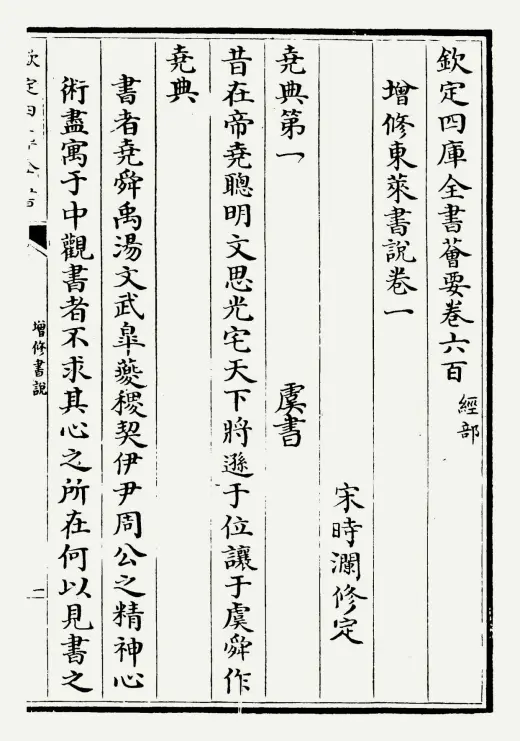 欽定四庫全書薈要卷六百 經部
增修東萊書說卷一
宋時瀾修定
堯典第一 虞書
昔在帝堯聰明文思光宅天下將遜于位讓于虞舜作
堯典
書者堯舜禹湯文武皐夔稷契伊尹周公之精神心
術盡寓于中觀書者不求其心之所在何以見書之
增修書說
二